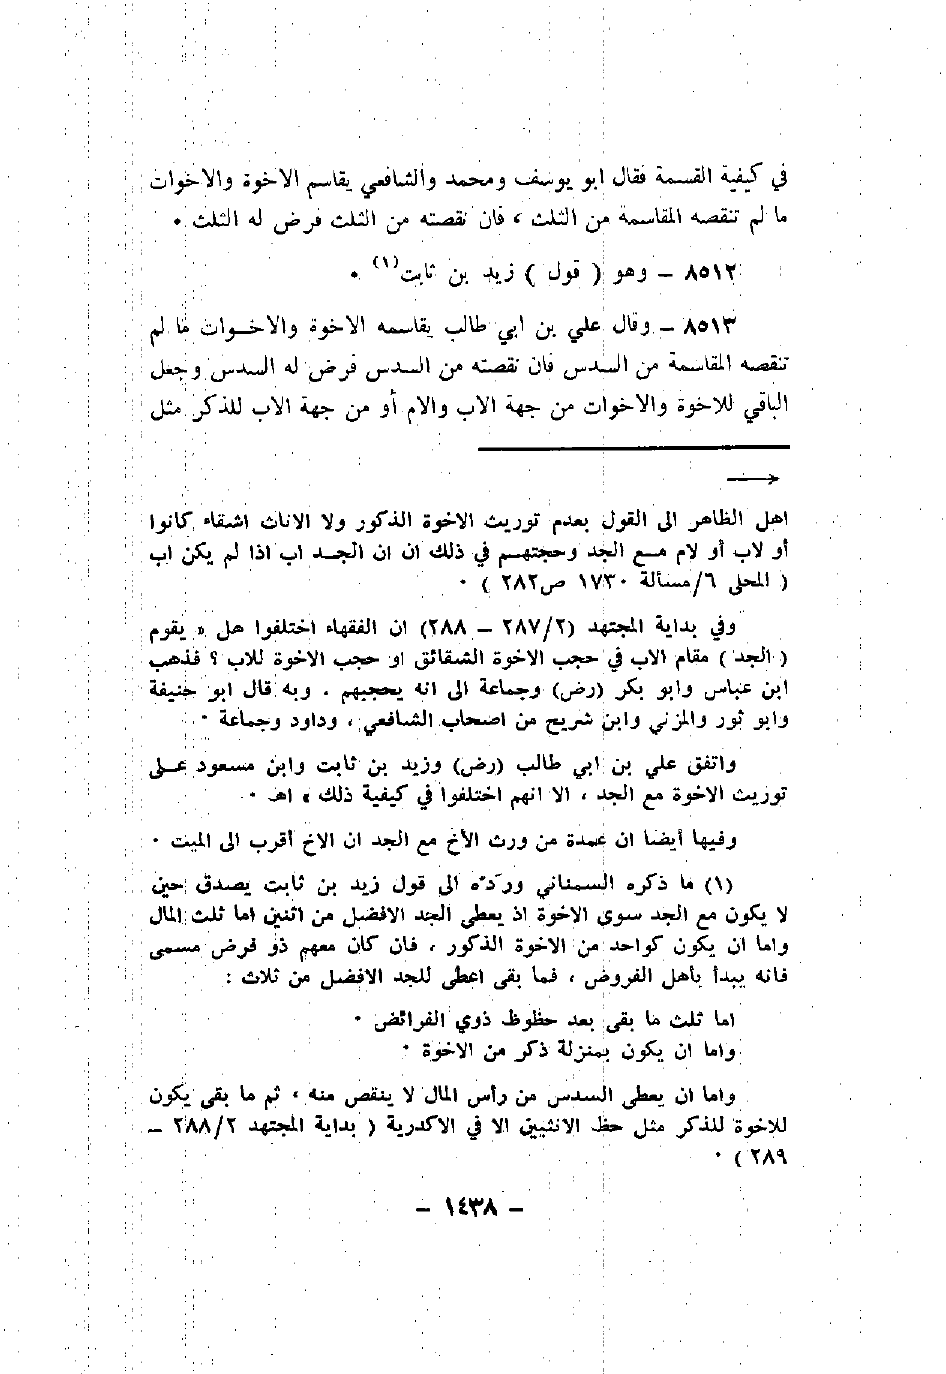 في كيفية القسمة فقال ابو يوسف ومحمد والشافعي يقاسم الاخوة والاخوات
ما لم تنقصه المقاسمة من الثلث ، فان نقصته من الثلث فرض له الثلث ٠
٨٥١٢ – وهو ( قول ) زيد بن ثابت(١) ٠
٨٥١٣ – وقال علي بن ابي طالب يقاسمه الاخوة والاخـوات ما لم
تنقصه المقاسمة من السدس فان نقصته من السدس فرض له السدس وجعل
الباقي للاخوة والاخوات من جهة الاب والام أو من جهة الاب للذكر مثل
→
اهل الظاهر الى القول بعدم توريث الاخوة الذكور ولا الاناث اشقاء كانوا
أو لاب أو لام مـع الجد وحجتهـم في ذلك ان ان الجـد اب اذا لم يكن اب
( المحلى ٦/مسألة ١٧٣٠ ص٢٨٢ ) ٠
وفي بداية المجتهد (٢/٢٨٧ – ٢٨٨) ان الفقهاء اختلفوا هل « يقوم
( الجد ) مقام الاب في حجب الاخوة الشقائق او حجب الاخوة للاب ؟ فذهب
ابن عباس وابو بكر (رض) وجماعة الى انه يحجبهم . وبه قال ابو حنيفة
وابو ثور والمزني وابن شريح من اصحاب الشافعي ، وداود وجماعة ٠
واتفق علي بن ابي طالب (رض) وزيد بن ثابت وابن مسعود عـلى
توريث الاخوة مع الجد ، الا انهم اختلفوا في كيفية ذلك » اهـ ٠
وفيها أيضا ان عمدة من ورث الأخ مع الجد ان الاخ أقرب الى الميت ٠
(١) ما ذكره السمناني وردّه الى قول زيد بن ثابت يصدق حين
لا يكون مع الجد سوى الاخوة اذ يعطى الجد الافضل من اثنين اما ثلث المال
واما ان يكون كواحد من الاخوة الذكور ، فان كان معهم ذو فرض مسمى
فانه يبدأ بأهل الفروض ، فما بقى اعطى للجد الافضل من ثلاث :
اما ثلث ما بقى بعد حظوظ ذوي الفرائض ٠
واما ان يكون بمنزلة ذكر من الاخوة ٠
واما ان يعطى السدس من رأس المال لا ينقص منه ، ثم ما بقى يكون
للاخوة للذكر مثل حظ الانثيين الا في الاكدرية ( بداية المجتهد ٢/٢٨٨ –
٢٨٩ ) ٠
– ١٤٣٨ –